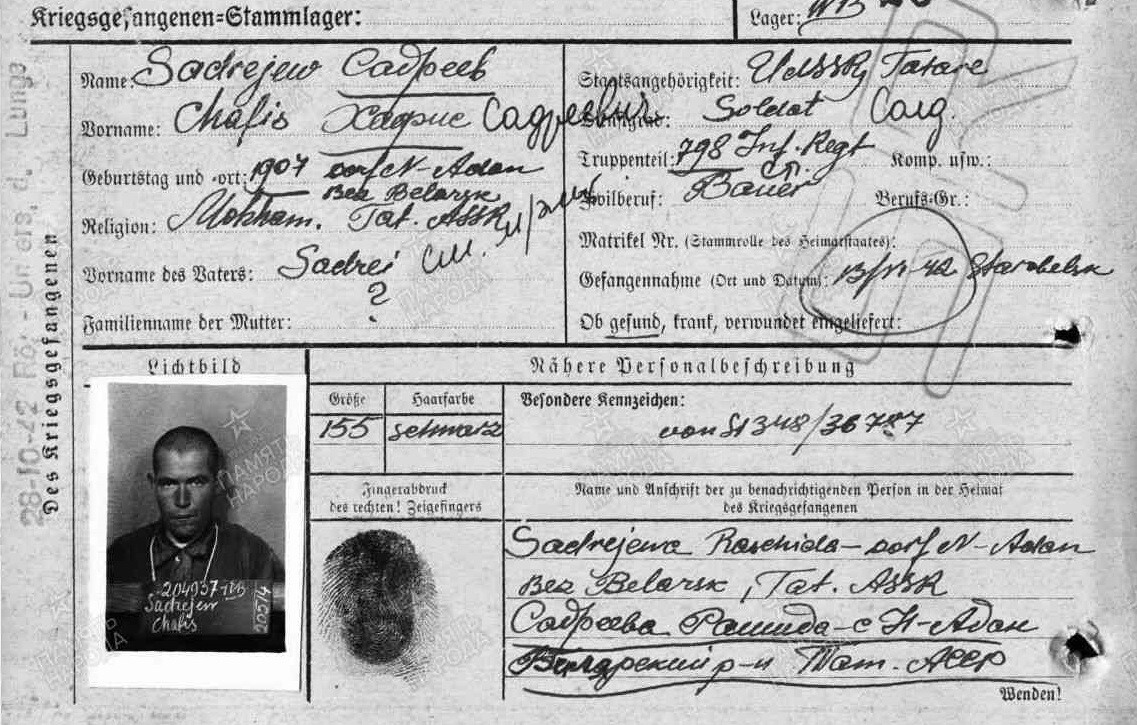 Kriegsgefangenen-Stammlager:
Lager: IV B
Name: Sadrejew Садреев
Vorname: Chafis Хафис Садреевич
Geburtstag und -ort: 1907 Dorf N-Adan
Bez Belarsk
Religion: Mohham. Tat. ASSR
Vorname des Vaters: Sadrei см. н/об
?
Familienname der Mutter:
Staatsangehörigkeit: UdSSR, Tatare
Dienstgrad: Soldat Солд.
Truppenteil: 798 Inf. Regt Komp. usw.:
Zivilberuf: Bauer Berufs-Gr.:
Matrikel Nr. (Stammrolle des Heimatstaates):
Gefangennahme (Ort und Datum): 42 Starobelsk
Ob gesund, krank, verwundet eingeliefert:
28-10-42 Rö.-Unters. d. Lunge
Des Kriegsgefangenen
Lichtbild
204937 IVB
Sadrejew
Chafis
Nähere Personalbeschreibung
Größe Haarfarbe Besondere Kennzeichen:
155 schwarz von St 348/36787
Fingerabdruck
des rechten! Zeigefingers
Name und Anschrift der zu benachrichtigenden Person in der Heimat
des Kriegsgefangenen
Sadrejewa Raschida - Dorf N-Adan
Bez Belarsk, Tat. ASSR
Садреева Рашида - с Н-Адан
р-н Тат. АССР
Wenden!
ПАМЯТЬ
НАРОДА